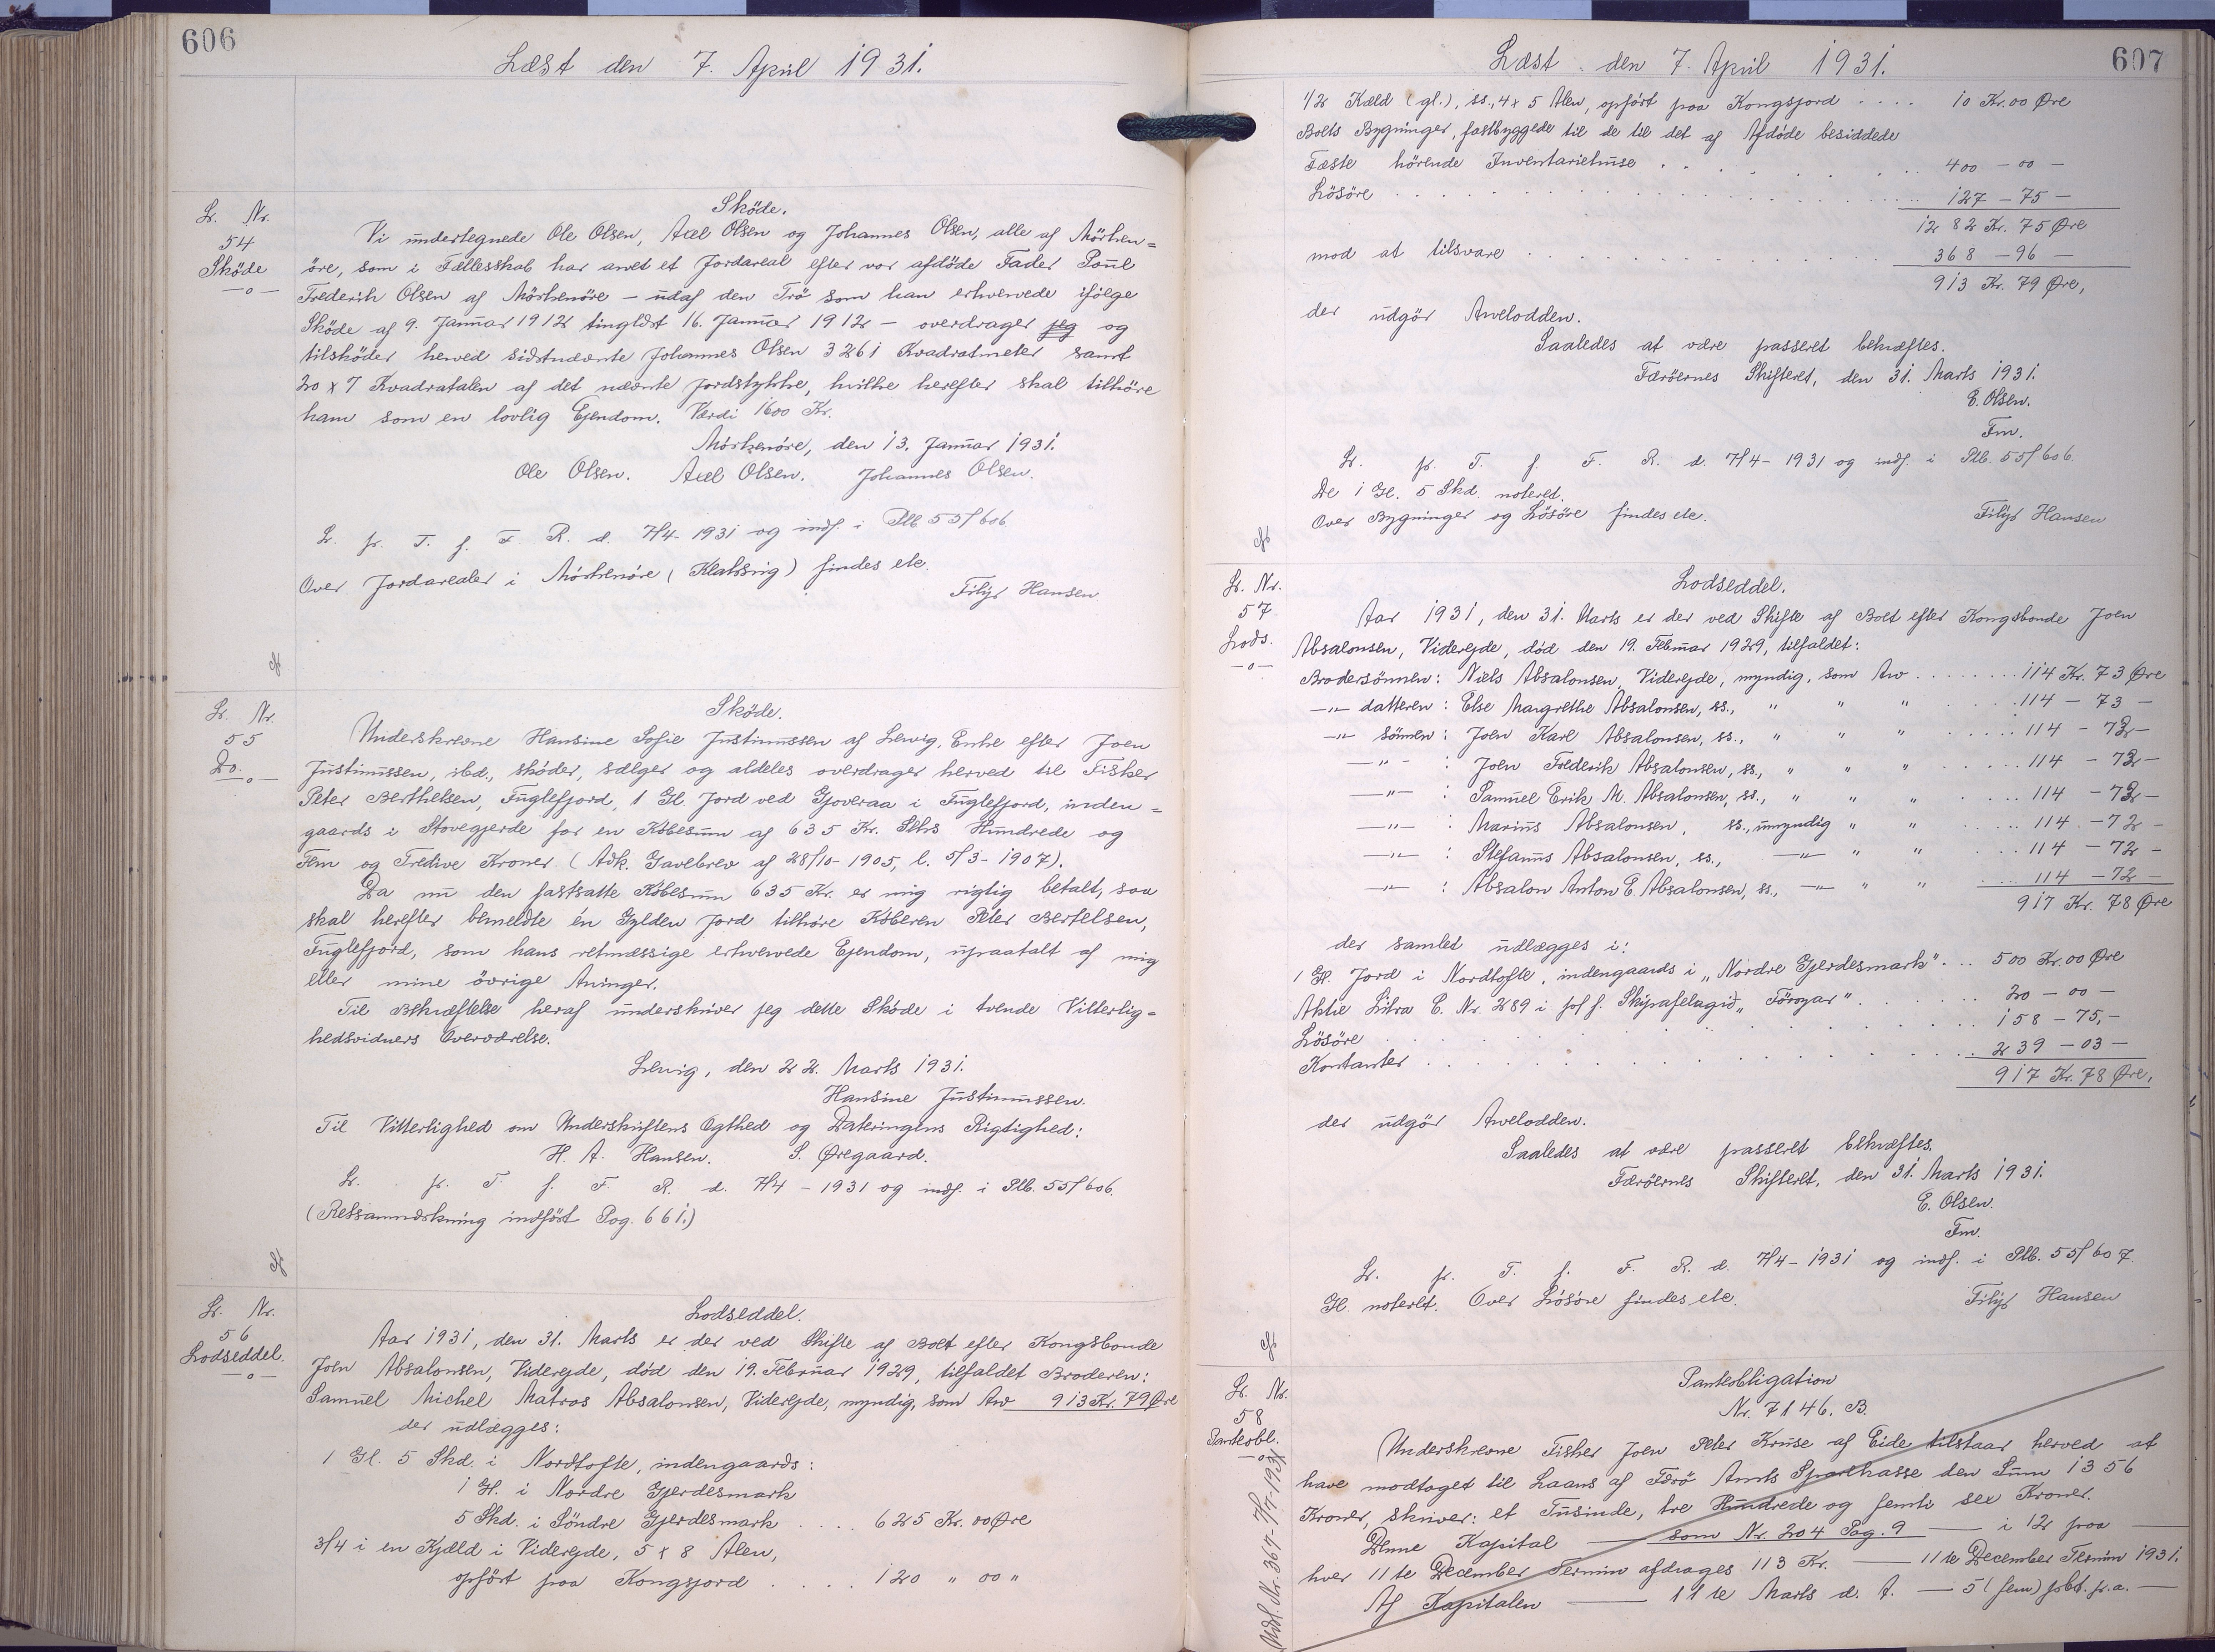 606
Læst den 7. April 1931.
Lr. Nr.
54
Sköde
—o—
Sköde.
Vi undertegnede Ole Olsen, Axel Olsen og Johannes Olsen, alle af Mörken=
öre, som i Fællesskab har arvet et Jordareal efter vor afdöde Fader Poul
Frederik Olsen af Mörkenöre — udaf den Trö som han erhvervede ifölge
Sköde af 9. Januar 1912 tinglæst 16. Januar 1912 — overdrager jeg og
tilsköder herved sidstnævnte Johannes Olsen 3261 Kvadratmeter samt
20 x 7 Kvadratalen af det nævnte Jordstykke, hvilke herefter skal tilhöre
ham som en lovlig Ejendom. Værdi 1600 Kr.
Mörkenöre, den 13. Januar 1931.
Ole Olsen. Axel Olsen. Johannes Olsen.
Lr. fr. T. f. F. R. d. 7/4-1931 og indf. i Ptb. 55/606
Over Jordarealer i Mörkenöre (Klaksvig) findes etc.
Filip Hansen
Lr. Nr.
55
Do.
—o—
Sköde.
Underskrevne Hansine Sofie Justinussen af Lervig, Enke efter Joen
Justinussen, ibd., sköder, sælger og aldeles overdrager herved til Fisker
Peter Berthelsen, Fuglefjord, 1 Gl. Jord ved Gjoveraa i Fuglefjord, inden=
gaards i Stovegjerde for en Köbesum af 635 Kr. Seks Hundrede og
Fem og Tredive Kroner (Adk. Gavebrev af 28/10-1905, l. 5/3-1907).
Da nu den fastsatte Köbesum 635 Kr. er mig rigtig betalt, saa
skal herefter bemeldte én Gylden Jord tilhöre Köberen Peter Bertelsen,
Fuglefjord, som hans retmæssige erhvervede Ejendom, upaatalt af mig
eller mine övrige Arvinger.
Til Bekræftelse heraf underskriver jeg dette Sköde i tvende Vitterlig=
hedsvidners Overværelse.
Lervig, den 22. Marts 1931.
Hansine Justinussen.
Til Vitterlighed om Underskriftens Ægthed og Dateringens Rigtighed:
H. A. Hansen. S. Øregaard.
Lr. fr. T. f. F. R. d. 7/4-1931 og indf. i Ptb. 55/606.
(Retsanmærkning indfört Pag. 661.)
Lr. Nr.
56
Lodseddel.
—o—
Lodseddel.
Aar 1931, den 31. Marts er der ved Skifte af Boet efter Kongsbonde
Joen Absalonsen, Viderejde, död den 19. Februar 1929, tilfaldet Broderen:
Samuel Michel Matros Absalonsen, Viderejde, myndig, som Arv 913 Kr. 79 Øre
der udlægges:
1 Gl. 5 Skd. i Nordtofte, indengaards:
1 Gl. i Nordre Gjerdesmark
5 Skd. i Söndre Gjerdesmark .... 625 Kr. 00 Øre
3/4 i en Kjæld i Viderejde, 5 x 8 Alen,
opfört paa Kongsjord .... 120 " 00 "
607
Læst den 7. April 1931.
1/2 Kæld (gl.), ss., 4 x 5 Alen, opfört paa Kongsjord .... 10 Kr. 00 Øre
Boets Bygninger, fastbyggede til de til det af Afdöde besiddede
Fæste hörende Inventariehuse ..... 400 — 00 —
Lösöre ..... 127 — 75 —
1282 Kr. 75 Øre
mod at tilsvare ..... 368 — 96 —
913 Kr. 79 Øre,
der udgör Arvelodden.
Saaledes at være passeret bekræftes.
Færöernes Skifteret, den 31. Marts 1931.
E. Olsen.
Fm.
Lr. fr. T. f. F. R. d. 7/4-1931 og indf. i Ptb. 55/606.
De 1 Gl. 5 Skd. noteret.
Over Bygninger og Lösöre findes etc.
Filip Hansen
Lr. Nr.
57
Lods.
—o—
Lodseddel.
Aar 1931, den 31. Marts er der ved Skifte af Boet efter Kongsbonde Joen
Absalonsen, Viderejde, död den 19. Februar 1929, tilfaldet:
Brodersönnen: Niels Absalonsen, Viderejde, myndig, som Arv ........ 114 Kr. 73 Øre
—"— datteren: Else Margrethe Absalonsen, ss., " " " ..... 114 — 73 —
—"— sönnen: Joen Karl Absalonsen, ss., " " " ..... 114 — 72 —
—"— : Joen Frederik Absalonsen, ss., " " " ..... 114 — 72 —
—"— : Samuel Erik M. Absalonsen, ss., " " " .... 114 — 72 —
—"— : Marius Absalonsen, ss., umyndig " " ..... 114 — 72 —
—"— : Stefanus Absalonsen, ss., —"— " " .... 114 — 72 —
—"— : Absalon Anton E. Absalonsen, ss., —"— " " ... 114 — 72 —
917 Kr. 78 Øre
der samlet udlægges i:
1 Gl. Jord i Nordtofte, indengaards i "Nordre Gjerdesmark" ... 500 Kr. 00 Øre
Aktie Litra C. Nr. 289 i pf f. Skipafelagid "Föroyar" ..... 20 — 00 —
Lösöre ..... 158 — 75, —
Kontanter ..... 239 — 03 —
917 Kr. 78 Øre,
der udgör Arvelodden.
Saaledes at være passeret bekræftes.
Færöernes Skifteret, den 31. Marts 1931.
E. Olsen.
Fm.
Lr. fr. T. f. F. R. d. 7/4-1931 og indf. i Ptb. 55/607.
Gl. noteret. Over Lösöre findes etc.
Filip Hansen
Lr. Nr.
58
Pantobl.
—o—
Pantobligation
Nr. 7146. B.
Underskrevne Fisker Joen Peter Kruse af Eide tilstaar herved at
have modtaget til Laans af Færö Amts Sparekasse den Sum 1356
Kroner, skriver: et Tusinde, tre Hundrede og femti sex Kroner.
Denne Kapital — som Nr. 204 Pag. 9 — i 12 paa —
hver 11te December Termin afdrages 113 Kr. — 11te December Termin 1931.
Af Kapitalen — 11te Marts d. A. — 5 (fem) pCt. p. a. —